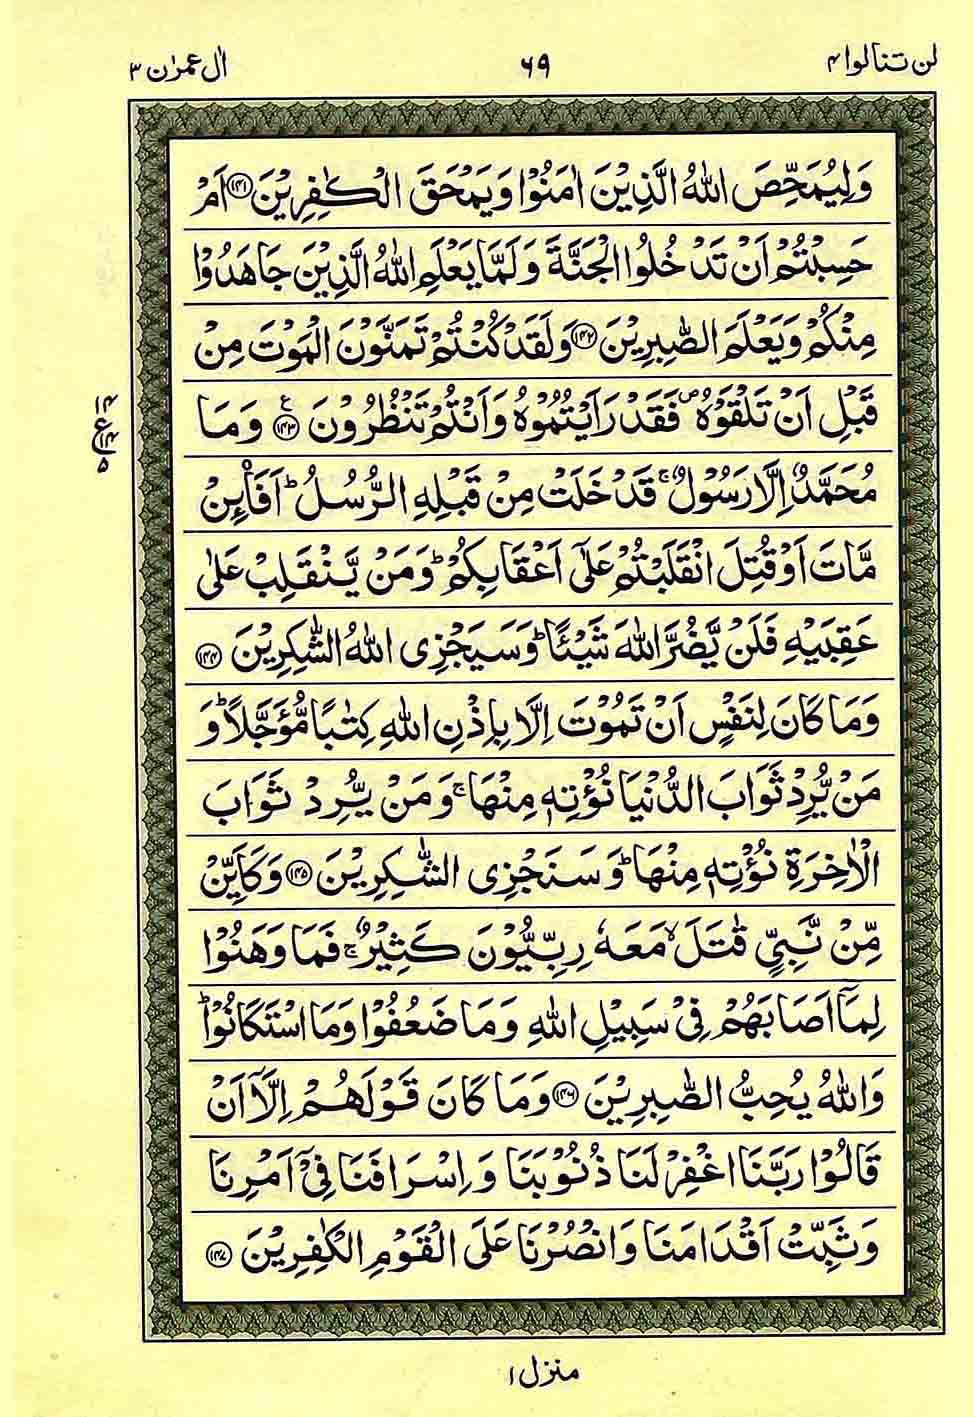 لن تنالوا ۴
۶۹
اٰل عمرٰن ۳
وَلِيُمَحِّصَ اللّٰهُ الَّذِيْنَ اٰمَنُوْا وَيَمْحَقَ الْكٰفِرِيْنَ ﴿۱۴۱﴾ اَمْ
حَسِبْتُمْ اَنْ تَدْخُلُوا الْجَنَّةَ وَلَمَّا يَعْلَمِ اللّٰهُ الَّذِيْنَ جَاهَدُوْا
مِنْكُمْ وَيَعْلَمَ الصّٰبِرِيْنَ ﴿۱۴۲﴾ وَلَقَدْ كُنْتُمْ تَمَنَّوْنَ الْمَوْتَ مِنْ
قَبْلِ اَنْ تَلْقَوْهُ ۪ فَقَدْ رَاَيْتُمُوْهُ وَاَنْتُمْ تَنْظُرُوْنَ ﴿۱۴۳﴾ ع وَمَا
۱۴
ع
۱۴
۵
مُحَمَّدٌ اِلَّا رَسُوْلٌ ۚ قَدْ خَلَتْ مِنْ قَبْلِهِ الرُّسُلُ ؕ اَفَا۟ئِنْ
مَّاتَ اَوْ قُتِلَ انْقَلَبْتُمْ عَلٰٓى اَعْقَابِكُمْ ؕ وَمَنْ يَّنْقَلِبْ عَلٰى
عَقِبَيْهِ فَلَنْ يَّضُرَّ اللّٰهَ شَيْئًا ؕ وَسَيَجْزِى اللّٰهُ الشّٰكِرِيْنَ ﴿۱۴۴﴾
وَمَا كَانَ لِنَفْسٍ اَنْ تَمُوْتَ اِلَّا بِاِذْنِ اللّٰهِ كِتٰبًا مُّؤَجَّلًا ؕ وَ
مَنْ يُّرِدْ ثَوَابَ الدُّنْيَا نُؤْتِهٖ مِنْهَا ۚ وَمَنْ يُّرِدْ ثَوَابَ
الْاٰخِرَةِ نُؤْتِهٖ مِنْهَا ؕ وَسَنَجْزِى الشّٰكِرِيْنَ ﴿۱۴۵﴾ وَكَاَيِّنْ
مِّنْ نَّبِيٍّ قٰتَلَ ۙ مَعَهٗ رِبِّيُّوْنَ كَثِيْرٌ ۚ فَمَا وَهَنُوْا
لِمَاۤ اَصَابَهُمْ فِيْ سَبِيْلِ اللّٰهِ وَمَا ضَعُفُوْا وَمَا اسْتَكَانُوْا ؕ
وَاللّٰهُ يُحِبُّ الصّٰبِرِيْنَ ﴿۱۴۶﴾ وَمَا كَانَ قَوْلَهُمْ اِلَّاۤ اَنْ
قَالُوْا رَبَّنَا اغْفِرْ لَنَا ذُنُوْبَنَا وَاِسْرَافَنَا فِيْۤ اَمْرِنَا
وَثَبِّتْ اَقْدَامَنَا وَانْصُرْنَا عَلَى الْقَوْمِ الْكٰفِرِيْنَ ﴿۱۴۷﴾
منزل ۱